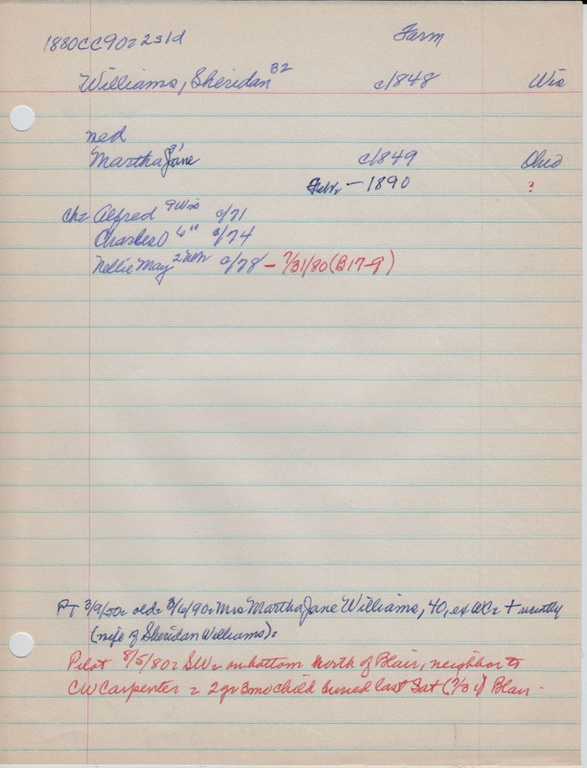 1880CC90=231d Farm
Williams, Sheridan 32 c/1848 Wis
ned
Martha Jane 31 c/1849 Ohio
- 1890 ?
ch= Alfred 9 Wis c/71
Charles O 6 " c/74
Nellie May 2 Neb c/78 - 7/31/80 (B17-9)
PT 3/9/ old= 3/6/90= Mrs Martha Jane Williams, 40, ex WC= + recently
(wife of Sheridan Williams)=
Pilot 8/5/80= SW= on bottom North of Blair, neighbor to
CW Carpenter = 2 yr 3 mo child buried last Sat (7/31) Blair.